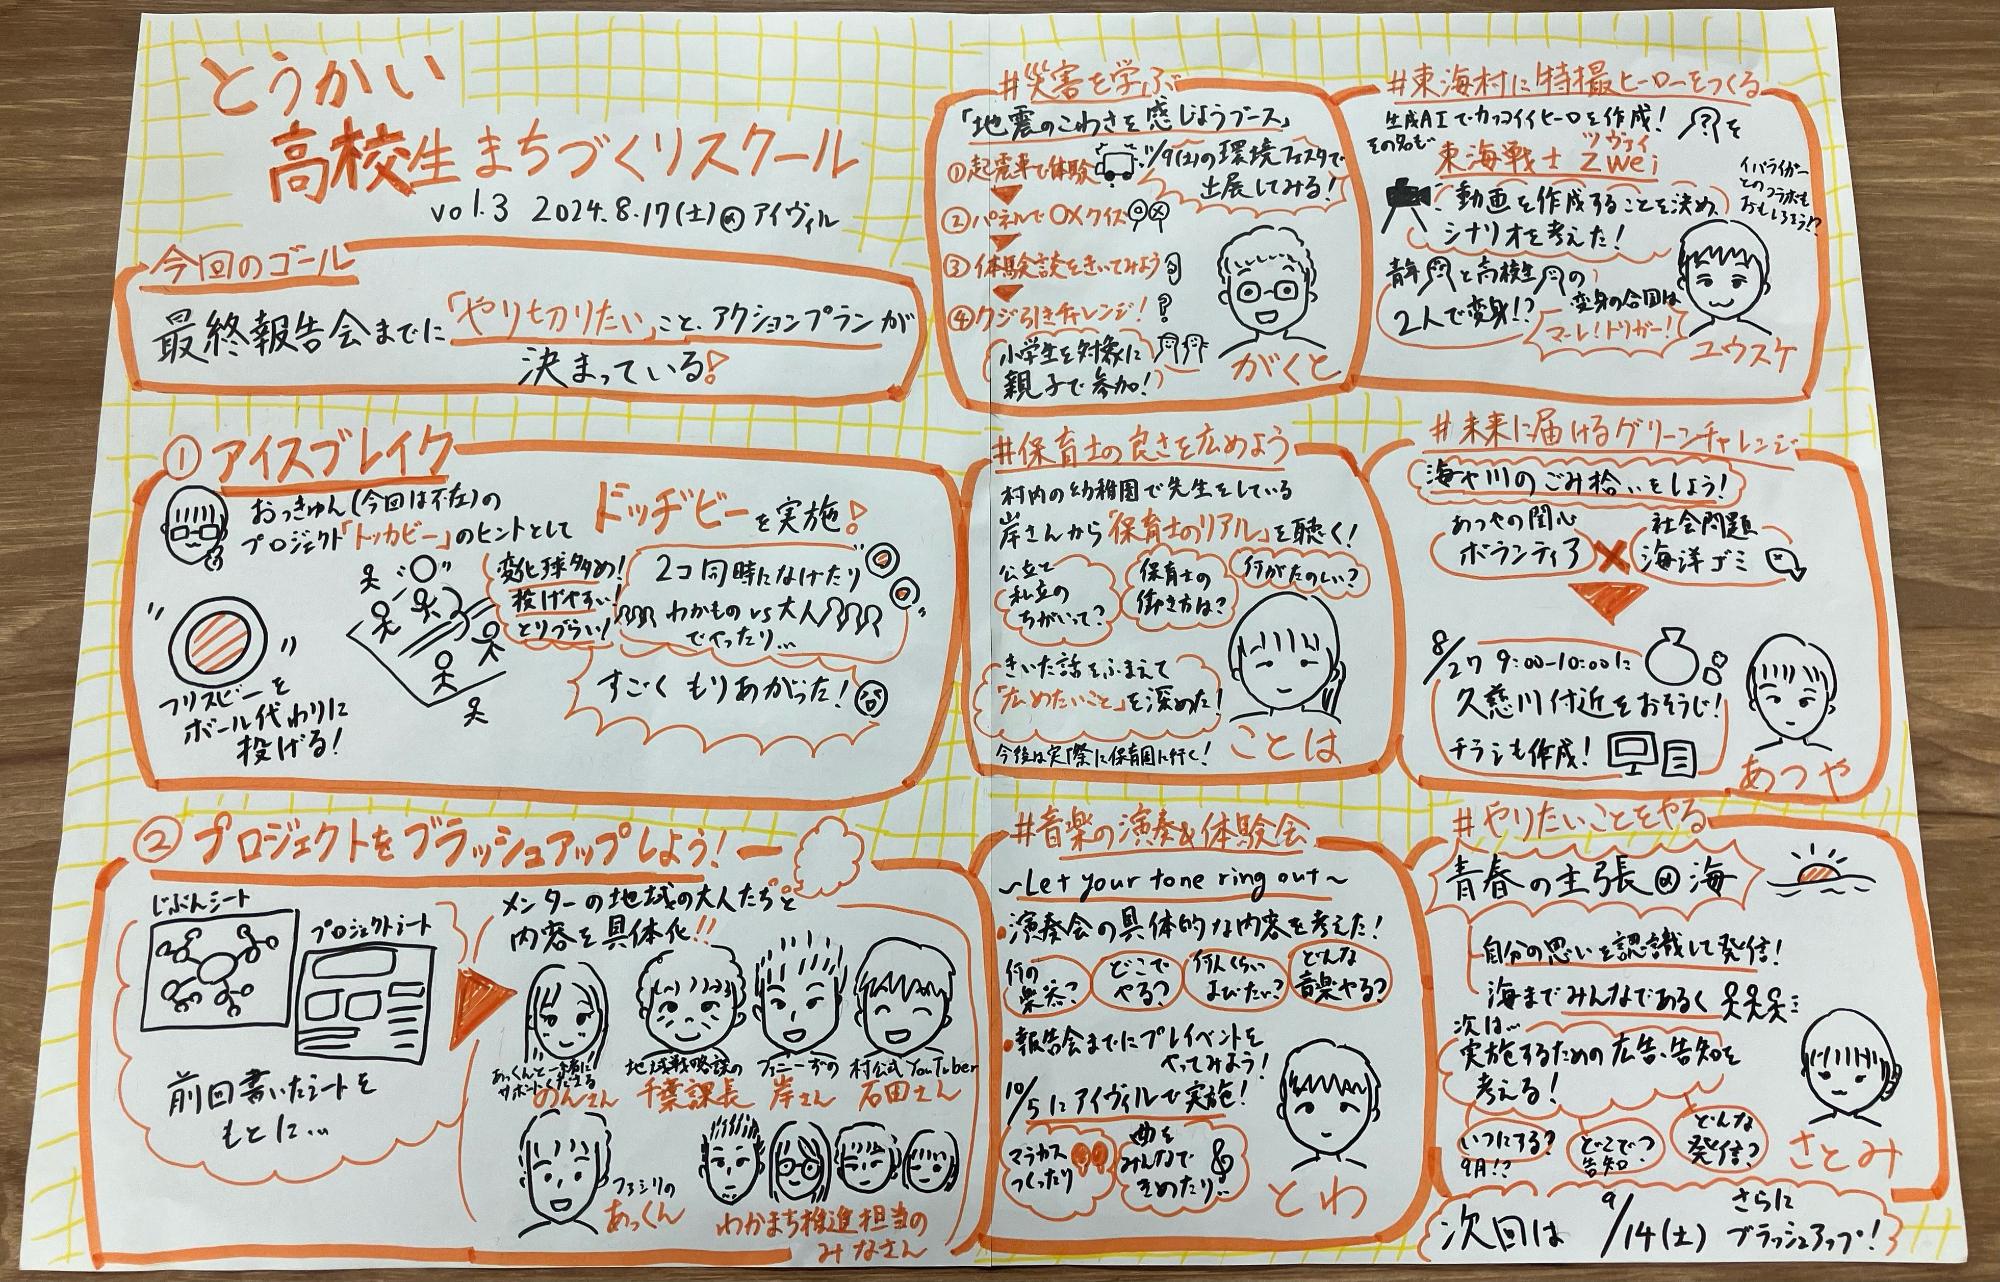 とうかい
高校生まちづくりスクール
vol.3 2024.8.17(土)@アイヴィル
今回のゴール
最終報告会までに「やり切りたい」こと、アクションプランが
決まっている!
①アイスブレイク
おっきゅん(今回は不在)の
プロジェクト「トッカビー」のヒントとして
ドッヂビーを実施!
フリスビーを
ボール代わりに
投げる!
変化球多め!
投げやすい!
とりづらい!
2コ同時になげたり
わかものvs大人
でやったり…
すごくもりあがった!
②プロジェクトをブラッシュアップしよう!
じぶんシート
プロジェクトシート
前回書いたシートを
もとに…
メンターの地域の大人たちと
内容を具体化!!
あっくんと一緒に
サポートくださる
のんさん
地域戦略課の
千葉課長
岸さん
村公式YouTuber
石田さん
ファシリの
あっくん
わかまち推進担当の
みなさん
#災害を学ぶ
「地震のこわさを感じようブース」
①起震車で体験
②パネルで〇×クイズ
③体験談をきいてみよう
④クジ引きチャレンジ!
11/9(土)の環境フェスタで
出展してみる!
小学生を対象に
親子で参加!
がくと
#東海村に特撮ヒーローをつくる
生成AIでカッコイイヒーロを作成!
その名も
東海戦士 Zwei
ツヴァイ
イバライガー
とのコラボも
おもしろそう!?
動画を作成することを決め、
シナリオを考えた!
青年と高校生の
2人で変身!?
変身の合図は
マーレ!トリガー!
ユウスケ
#保育士の良さを広めよう
村内の幼稚園で先生をしている
岸さんから「保育士のリアル」を聴く!
公立と
私立の
ちがいって?
保育士の
働き方は?
何がたのしい?
きいた話をふまえて
「広めたいこと」を深めた!
今後は実際に保育園に行く!
ことは
#未来に届けるグリーンチャレンジ
海や川のごみ拾いをしよう!
あつやの関心
ボランティア
×
社会問題
海洋ゴミ
8/27 9:00-10:00に
久慈川付近をおそうじ!
チラシも作成!
あつや
#音楽の演奏&体験会
~Let your tone ring out~
・演奏会の具体的な内容を考えた!
何の
楽器?
どこで
やる?
何人くらい
よびたい?
どんな
音楽やる?
・報告会までにプレイベントを
やってみよう!
10/5にアイヴィルで実施!
マラカス
つくったり
曲を
みんなで
きめたり…
とわ
#やりたいことをやる
青春の主張@海
自分の思いを認識して発信!
海までみんなであるく
次は…
実施するための広告、告知を
考える!
いつにする?
9月!?
どこで?
告知?
どんな
発信?
さとみ
次回は 9/14(土) さらに
ブラッシュアップ!